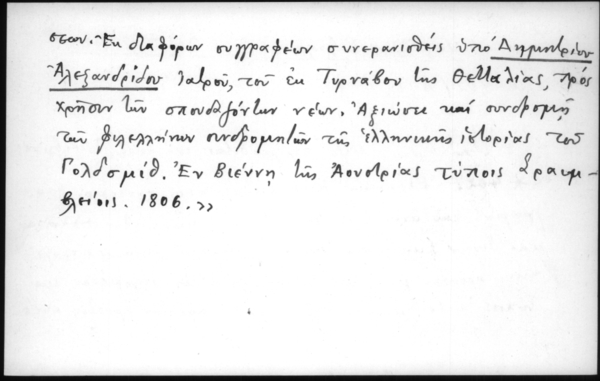 σεων. Ἐκ διαφόρων συγγραφέων συνερανισθεὶς ὑπό Δημητρίου
Ἀλεξανδρίδου Ἰατροῦ, τοῦ ἐκ Τυρνάβου τῆς Θετταλίας, πρός
χρῆσιν τῶν σπουδαζόντων νέων. Ἀξιώσει καί συνδρομῇ
τῶν φιλελλήνων συνδρομητῶν τῆς ἑλληνικῆς ἱστορίας τοῦ
Γολδσμίθ. Ἐν Βιέννῃ τῆς Ἀουστρίας τύποις Σραυμ-
βλείοις. 1806.»